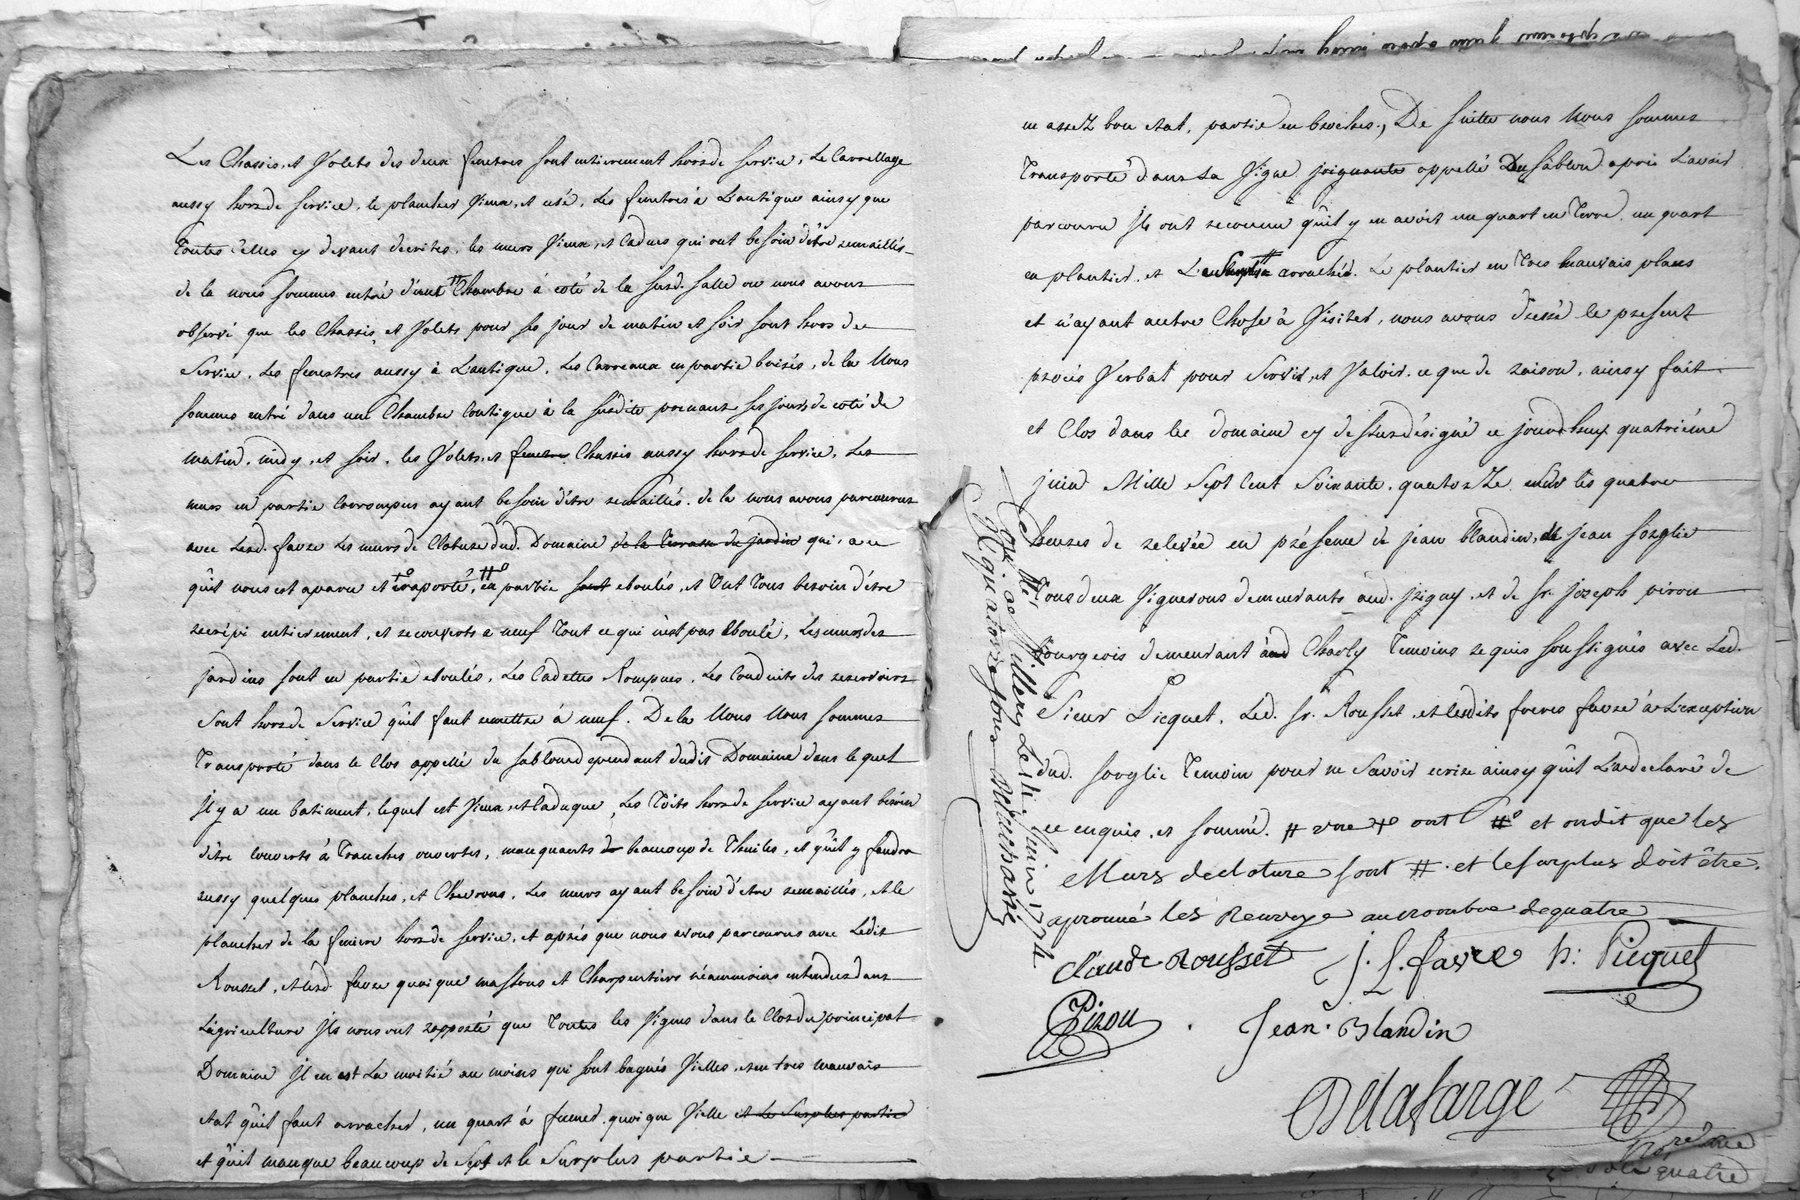 Les Chassis, et Volets des deux fenetres sont entierement hors de service, Le Carrellage
aussy hors de service, le plancher vieux, et usé, Les fenetres à L'antique ainsy que
toutes celles cy devant decrites, les murs vieux, et Caducs qui ont besoin d'être remaillés
de la nous sommes entré d'ans une Chambre à coté de la susd. salle ou nous avons
observé que les Chassis, et Volets pour ses jour de matin et soir sont hors de
service, Les fenetres aussy à L'antique, Les Carreaux en partie brisés, de la Nous
sommes entré dans une Chambre Contigue à la susdite prenant ses jours de coté de
matin, midy, et soir, les Volets, et fenetre Chassis aussy hors de service, Les
murs en partie Corrompus ayant besoin d'être remaillés. de la nous avons parcourus
avec Lesd. favre Les murs de Cloture dud. Domaine de la terrasse du jardin qui, a ce
qu'il nous est aparu et rapporté, en partie sont eboulés, et Ont tous besoin d'être
recrépi entierement, et recouverts a neuf tout ce qui n'est pas Eboulé, Les murs des
jardins sont en partie eboulés, Les Cadettes Rompues, Les Conduits des reservoirs
sont hors de service qu'il faut remettre à neuf. De la Nous Nous sommes
Transporté dans le Clos appellé du sablon dependant dudit Domaine dans lequel
Il y a un batiment, lequel est vieux, et Caduque, Les Toits hors de service ayant besoin
d'être Couverts à Tranches ouvertes, manquants de beaucoup de Thuiles, et qu'il y faudra
aussy quelques planches, et Chevrons, Les murs ayant besoin d'être remaillés, et le
plancher de la feniere hors de service, et après que nous avons parcourus avec Ledit
Rousset, et lesd. favre quoique massons et Charpentiers néanmoins entendus dans
L'agriculture Ils nous ont rapporté que toutes les Vignes dans le Clos du principal
Domaine Il en est La moitié au moins qui sont vieilles, et en tres mauvais
état qu'il faut arracher, un quart à fumer, quoique Vielle et Le Surplus partie
et qu'il manque beaucoup de Sept et le Surplus partie
en assez bon etat, partie en broches., De suitte nous Nous sommes
Transporté dans La Vigne joignante appellé Du Sablon après L'avoir
parcouru Ils ont reconnu qu'il y en avoit un quart en Terre, un quart
en plantier, et Le arraché. Le plantier en tres mauvais plans
et n'ayant autre Chose à Visiter, nous avons dressé le present
procès Verbal pour Servir, et Valoir ce que de raison, ainsy fait
et Clos dans le domaine cy dessus désigné ce jourdhuy quatriéme
juin Mille Sept Cent Soixante quatorze sur les quatre
heures de relevée en présence de jean blandin, de jean forglie
Tous deux Vignerons demeurants aud. Irigny, et de sr. joseph pirou
Bourgeois demeurant aud Charly Temoins requis soussignés avec Led.
Sieur Picquet, Led. sr. Rousset, et lesdits freres favre à L'exception
dud. forglie Temoin pour ne Savoir ecrire ainsy qu'il L'a declaré de
ce enquis, et sommé. # une +o ont #o et ondit que les
Murs decloture sont #. et le surplus doit être.
aprouué les Renvoye au nombre de quatre
Claude Rousset J. L. favre h: Picquet
Pirou Jean Blandin
Delafarge
Cole. a Millery Le 11 juin 1774.
R. quatorze sous
quatre